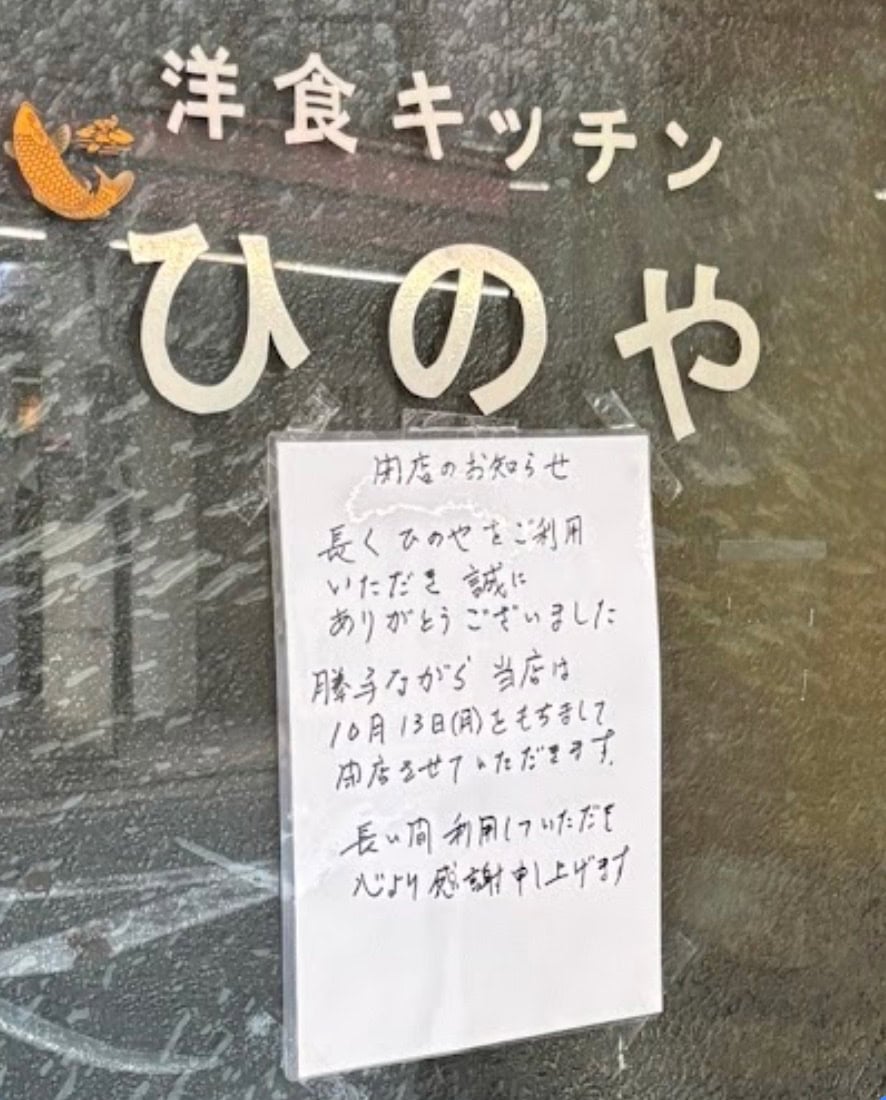 洋食キッチン
ひのや
閉店のお知らせ
長くひのやをご利用
いただき 誠に
ありがとうございました
勝手ながら 当店は
10月13日(月)をもちまして
閉店させていただきます。
長い間 利用していただき
心より感謝申し上げます